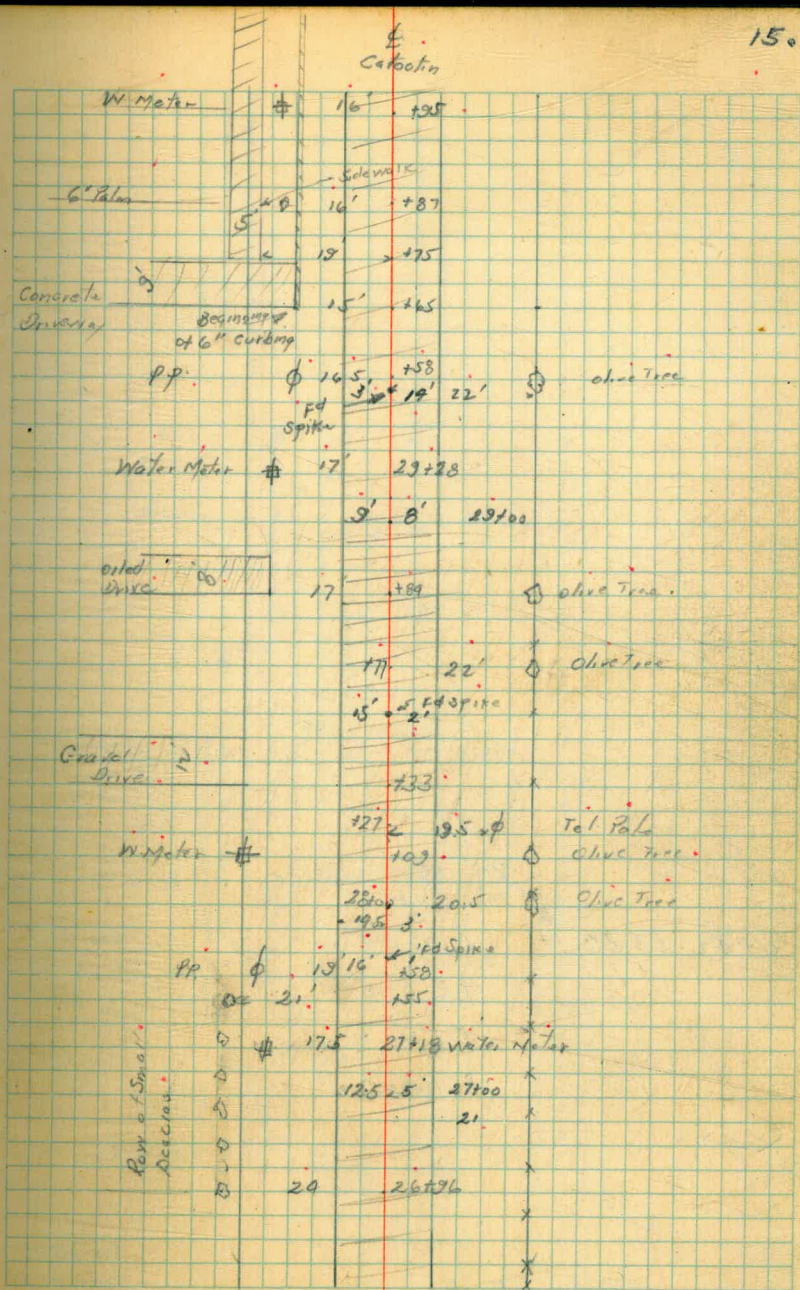 15.
℄
Catoctin
W Meter 16' +95
Sidewalk
6" Palm 16' +87
5'
19' +75
9'
Concrete 15' +65
Driveway
Beginning of
of 6" Curbing
P.P. 16.5 +58 Olive Tree
3' 14' 22'
Fd
Spike
Water Meter 17' 29+28
9' 8' 29+00
Oiled 8'
Drive 17' +89 Olive Tree.
+71 22' Olive Tree
15' 2' Fd Spike
Gravel 12'
Drive +33
+27 19.5 Tel Pole
W. Meter +09 Olive Tree
28+00 20.5 Olive Tree
19.5 3'
Fd Spike
P.P. 19' 16' 1' +58
21' +55
17.5 27+18 Water Meter
12.5 5' 27+00
21
Row of Small
Acacias
24 26+96